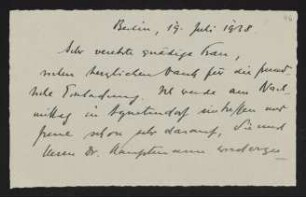 Berlin, 19. Juli 1928
Sehr verehrte gnädige Frau,
vielen herzlichen Dank für die freund-
liche Einladung. Ich werde am Nach-
mittag in Agnetendorf eintreffen und
freue schon sehr darauf, Sie und
Herrn Dr. Hauptmann wiederzu-